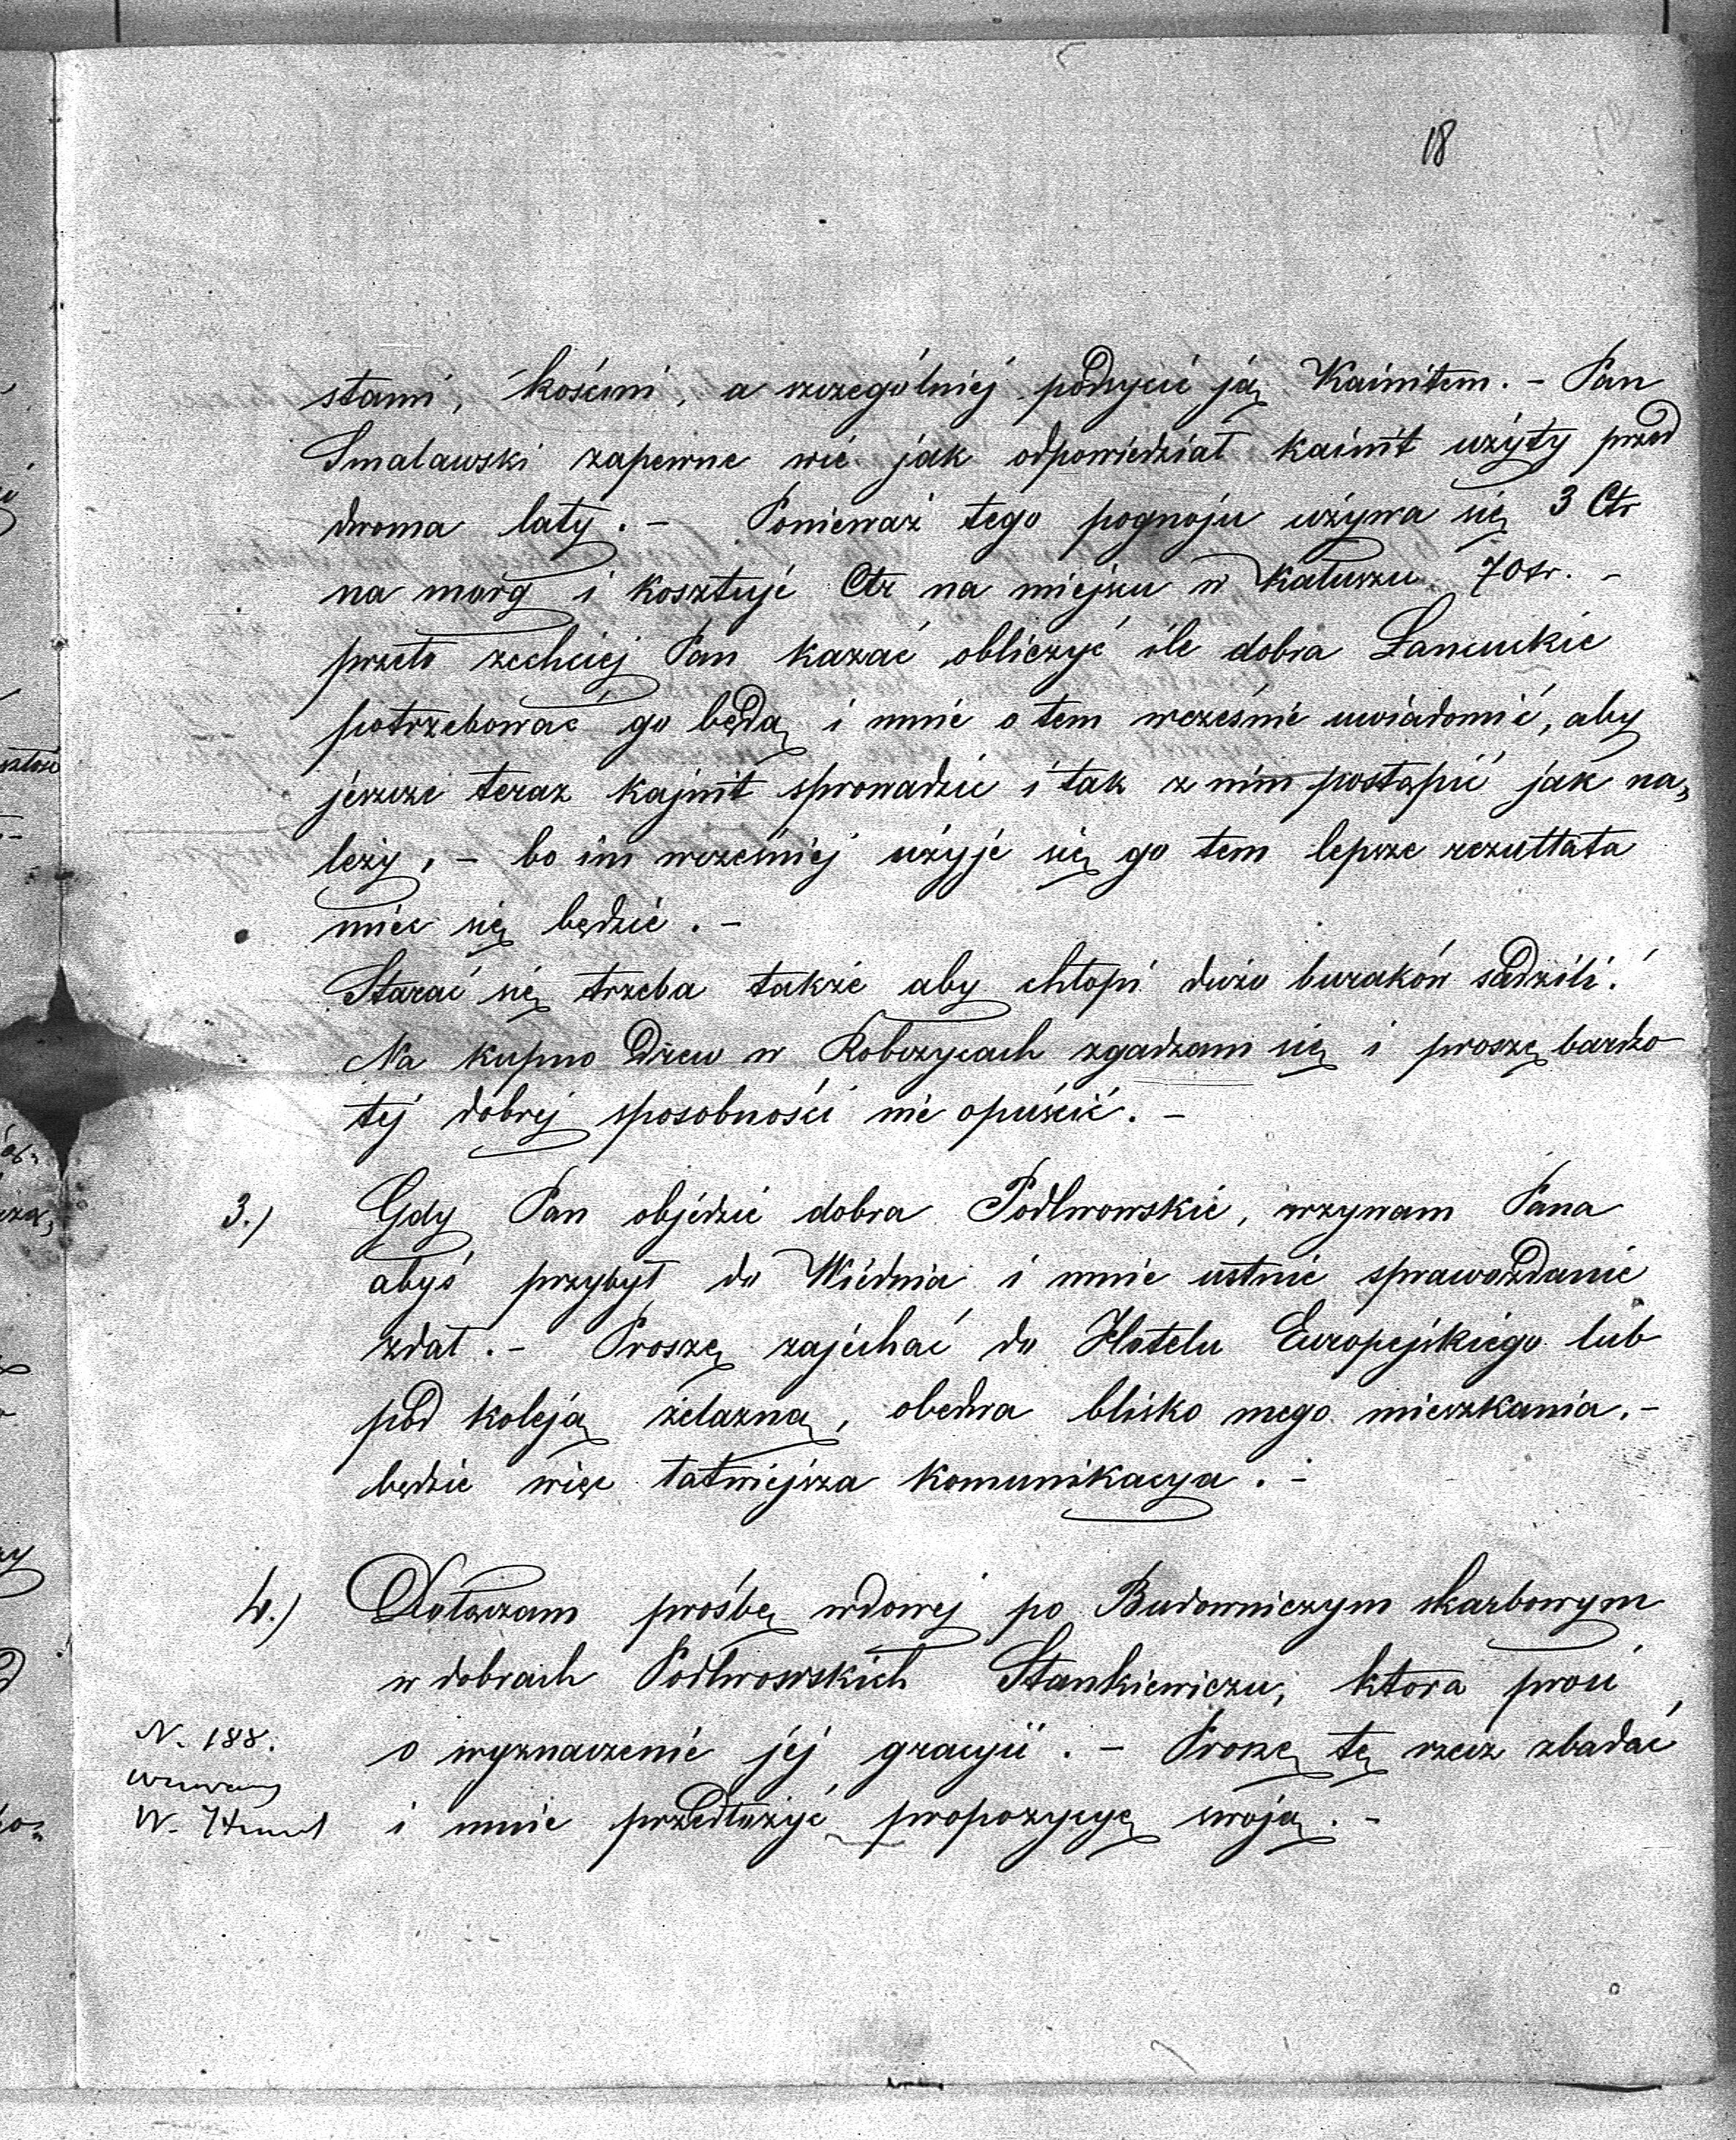 18
stami, kośćmi, a szczególniej podsycić ją Kainitem. - Pan
Smalawski zapewne wie jak odpowiedział kainit użyty przed
dwoma laty. - Ponieważ tego pognoju używa się 3 Ctr
na morg i kosztuje Ctr na miejscu w Kałuszu 70 kr. -
przeto zechciej Pan kazać obliczyć ile dobra Łancuckie
potrzebować go będą i mnie o tem wcześnie uwiadomić, aby
jeszcze teraz kajnit sprowadzić i tak z nim postąpić jak na„
leży, - bo im wcześniej użyje się go tem lepsze rezultata
mieć się będzie. -
Starać się trzeba także aby chłopi dużo buraków sadzili.
Na kupno Drzew w Robczycach zgadzam się i proszę bardzo
tej dobrej sposobności nie opuścić. -
3.) Gdy Pan objedzie dobra Podlwowskie, wzywam Pana
abyś przybył do Wiednia i mnie ustnie sprawozdanie
zdał. - Proszę zajechać do Hotelu Europejskiego lub
pod koleją żelazną, obedwa blisko mego mieszkania. -
będzie więc łatwiejsza komunikacya. -
4.) Dołączam prośbę wdowej po Budowniczym skarbowym
w dobrach Podlwowskich Stankiewiczu, która prosi
N. 188.
o wyznaczenie jej gracyii. - Proszę tę rzecz zbadać
i mnie przedłożyć propozycyę swoją. -